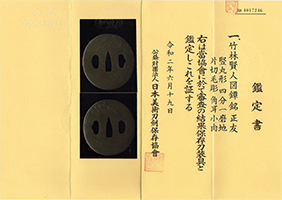 鑑定書
一、竹林賢人図鐔 銘 正友
竪丸形 四分一磨地
片切毛彫 角耳小肉
右は當協會に於て審査の結果保存刀装具と
鑑定しこれを証する
令和二年六月十九日
公益財団法人日本美術刀剣保存協會